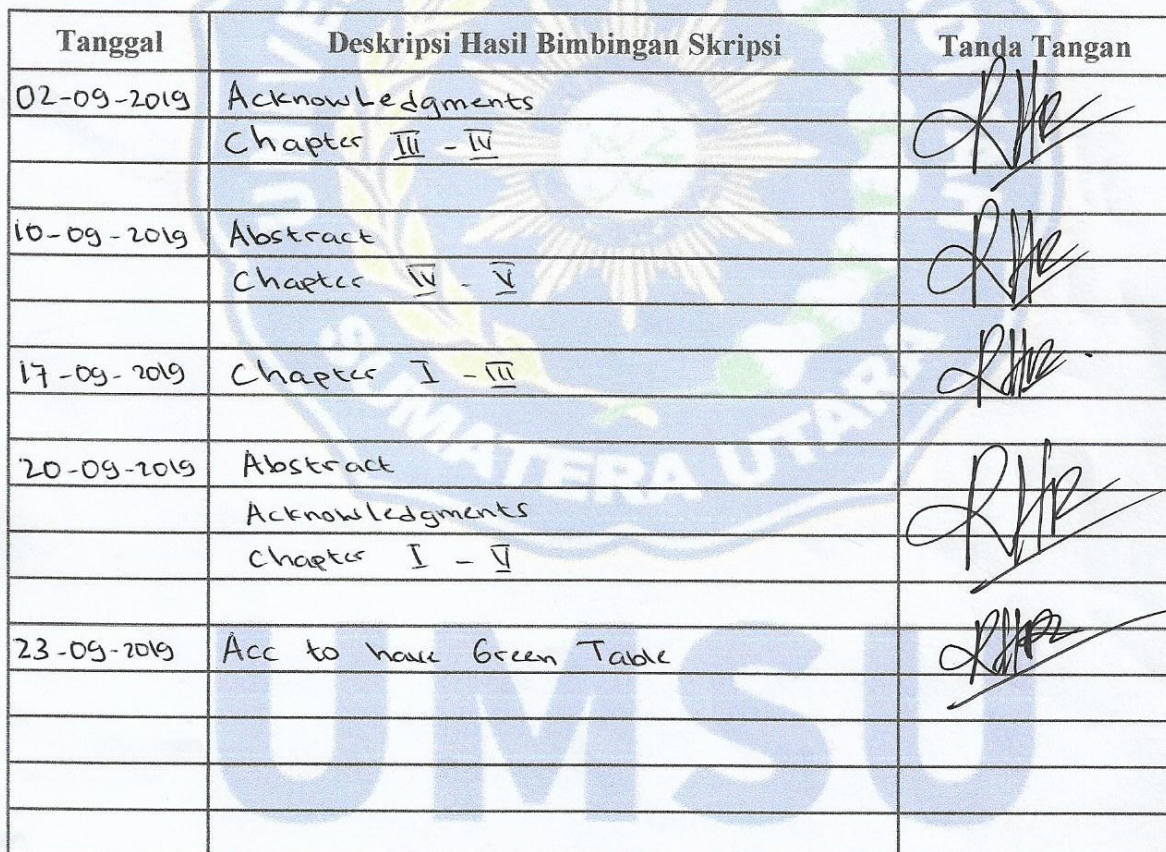 Tanggal Deskripsi Hasil Bimbingan Skripsi Tanda Tangan
02-09-2019 Acknowledgments
Chapter III - IV
10-09-2019 Abstract
Chapter IV - V
17-09-2019 Chapter I - III
20-09-2019 Abstract
Acknowledgments
Chapter I - V
23-09-2019 Acc to have Green Table
SUMATERA UTARA
UMSU